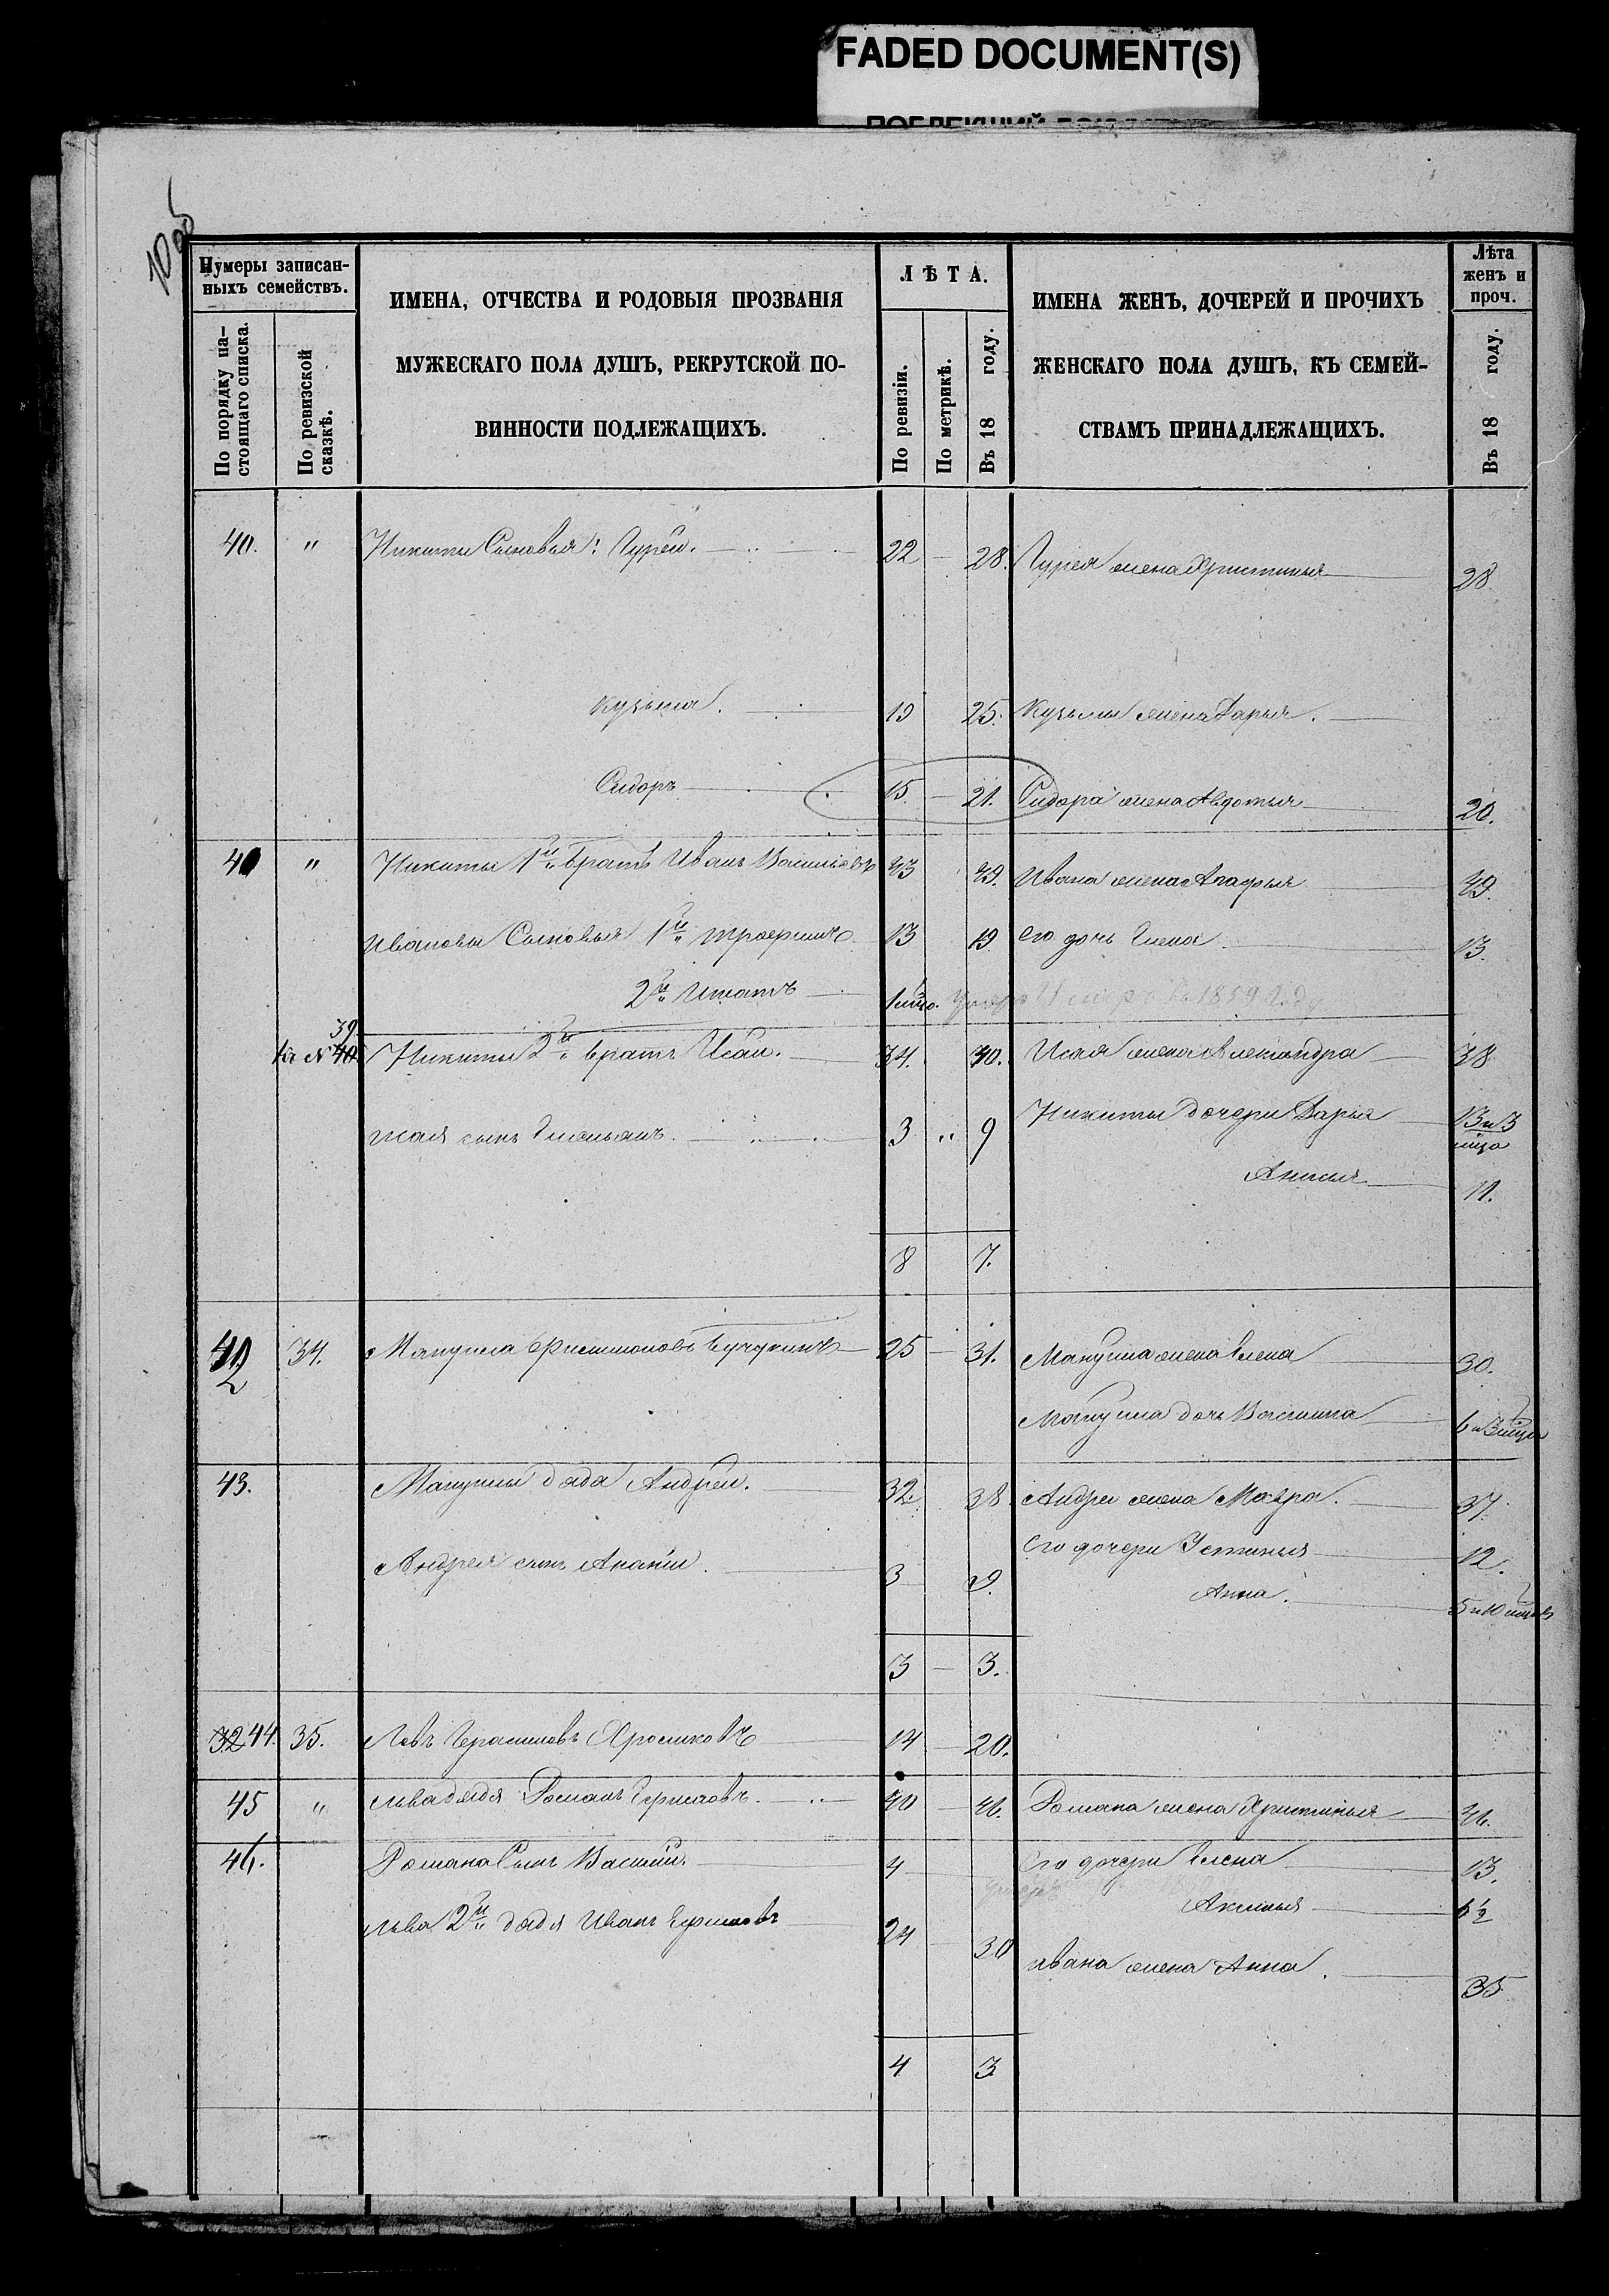 FADED DOCUMENT(S)
Нумеры записан-
ныхъ семействъ.
По порядку на-
стоящаго списка.
По ревизской
сказкѣ.
ИМЕНА, ОТЧЕСТВА И РОДОВЫЯ ПРОЗВАНІЯ
МУЖЕСКАГО ПОЛА ДУШЪ, РЕКРУТСКОЙ ПО-
ВИННОСТИ ПОДЛЕЖАЩИХЪ.
ЛѢТА.
По ревизіи.
По метрикѣ.
Въ 18 году.
ИМЕНА ЖЕНЪ, ДОЧЕРЕЙ И ПРОЧИХЪ
ЖЕНСКАГО ПОЛА ДУШЪ, КЪ СЕМЕЙ-
СТВАМЪ ПРИНАДЛЕЖАЩИХЪ.
Лѣта
женъ и
проч.
Въ 18 году.
40. " Никиты Сыновья: Гурей. 22 — 28. Гурея жена Христинья 28.
Кузьма. 19 25. Кузьмы жена Дарья.
Сидоръ 15 — 21. Сидора жена Авдотья 20.
41 " Никиты 1й братъ Иванъ Васильевъ 43 49. Ивана жена Агафья 49.
Ивановы Сыновья 1й 13 19 его дочь Елена 13.
2й Игнатъ Умеръ въ 1859 году
39
Никиты 2й братъ Исай. 34. 40. Исая жена Александра 38
Исая сынъ Емельянъ. 3 " 9 Никиты дочери Дарья 13 и 3
Анисья 11.
8 7.
42 34. Мануила Бучукинъ 25 — 31. Мануила жена Елена 30.
Мануила дочь Василиса
43. Мануилы дядя Андрей. 32. 38 Андрея жена Мавра. 37.
Андрея сынъ Ананій. 3 9. Его дочери Устинья 12.
Анна.
3 — 3.
32 44. 35. Левъ Герасимовъ 14 — 20.
45 " Льва дядя Романъ 40 — 46. Романа жена Христинья 46.
46. Романа Сынъ Василій. 4 Его дочери Елена 13.
умеръ
Аксинья
Льва 2й дядя Иванъ 24 30 Ивана жена Анна. 35
4 3